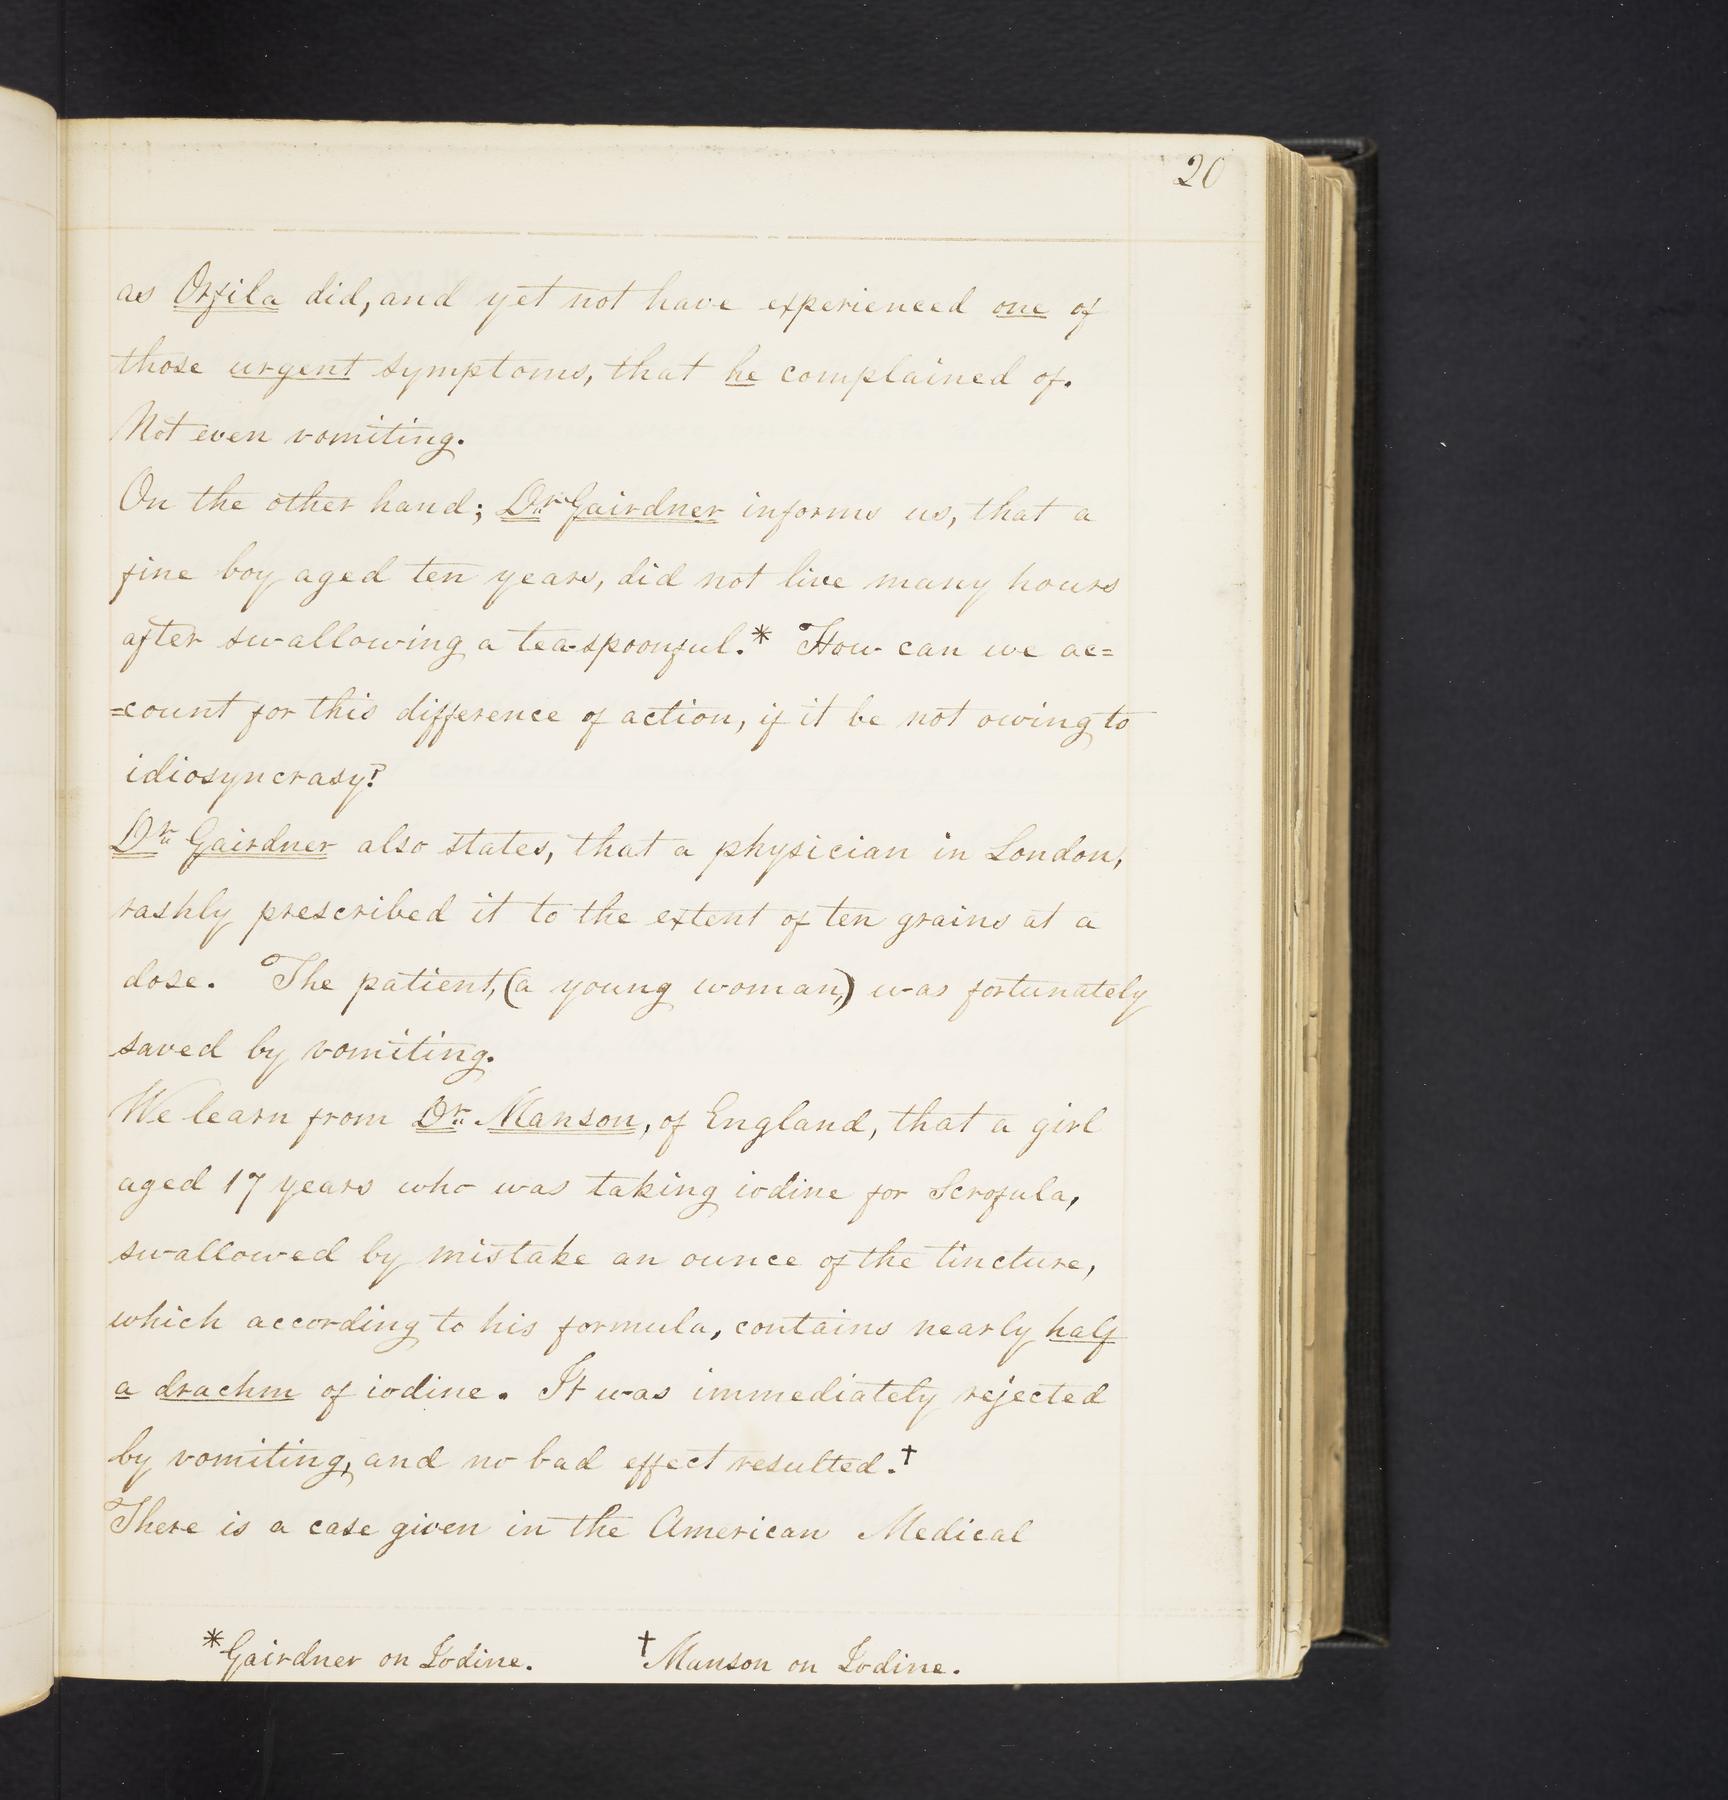 20
as Orfila did, and yet not have experienced one of
those urgent symptoms, that he complained of.
Not even vomiting.
On the other hand; Dr. Gairdner informs us, that a
fine boy aged ten years, did not live many hours
after swallowing a tea-spoonful.* How can we ac=
=count for this difference of action, if it be not owing to
idiosyncrasy?
Dr. Gairdner also states, that a physician in London,
rashly prescribed it to the extent of ten grains at a
dose. The patient, (a young woman,) was fortunately
saved by vomiting.
We learn from Dr. Manson, of England, that a girl
aged 17 years who was taking iodine for Scrofula,
swallowed by mistake an ounce of the tincture,
which according to his formula, contains nearly half
a drachm of iodine. It was immediately rejected
by vomiting, and no bad effect resulted.†
There is a case given in the American Medical
*Gairdner on Iodine. †Manson on Iodine.